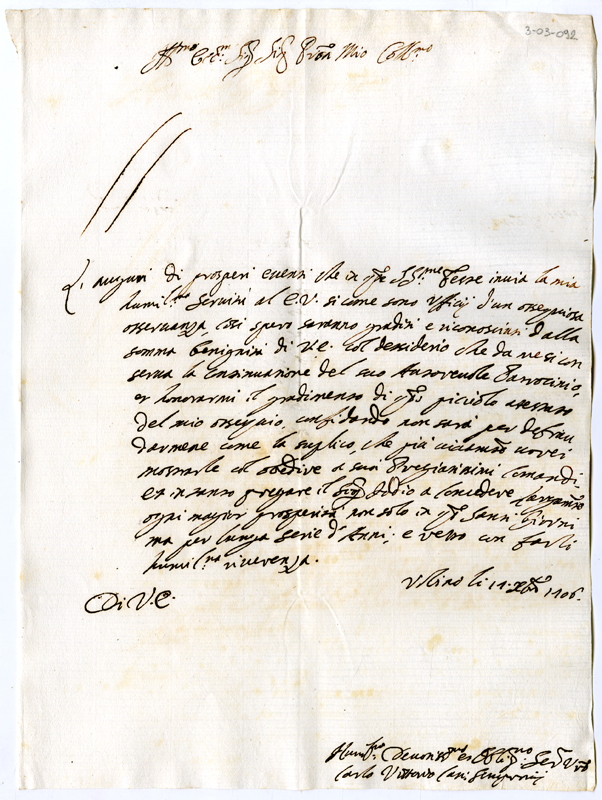 3-03-092
Ill.mo Ecc.mo Sig. Sig. Pron Mio Coll.mo
L'augurij di prosperi eventi che in q.ste SS.me Feste invia la mia
humil.ma Servitù al E.V. si come sono Ufficij d'un ossequiosa
osservanza, così spero saranno graditi e riconosciuti dalla
somma benignità di V.E. col desiderio che da me si con
serva la continuatione del suo Autorevole Patrocinio,
et honorarmi il gradimento di q.sto picciolo attestato
del mio ossequio, confidando non sarà per defrau
darmene come la suplico, che più vivamte vorrei
mostrarle col obedire a suoi Pregiatissimi Comandi
et in tanto pregare il Sig. Iddio a concedere
ogni magior prosperità non solo in q.sti Santi Giorni
ma per lunga serie d'Anni, e resto con farli
humil.ma riverenza.
Urbino li 14 Xbre 1706.
Di V.E.
Humil.mo Devotiss.mo et Oblig.mo Ser.
Carlo Vittorio